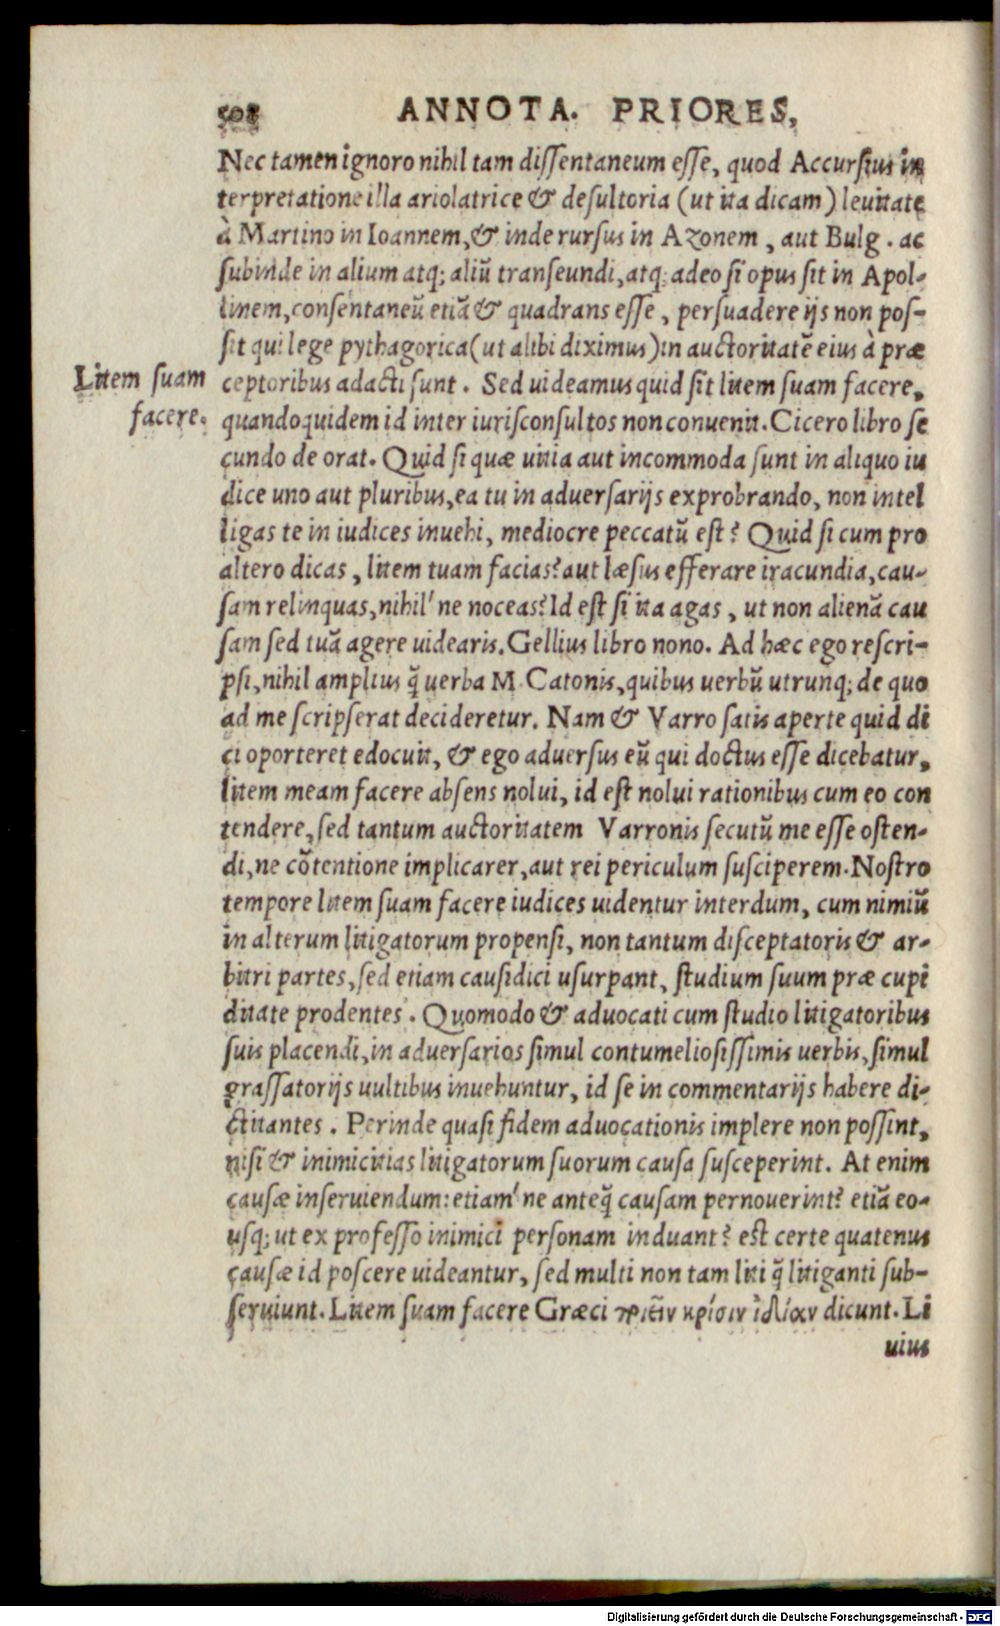 508 ANNOTA. PRIORES,
Nec tamen ignoro nihil tam dissentaneum esse, quod Accursius in
terpretatione illa ariolatrice & desultoria (ut ita dicam) leuitate
à Martino in Ioannem, & inde rursus in Azonem, aut Bulg. ac
subinde in alium atq; aliũ transeundi, atq; adeo si opus sit in Apol-
linem, consentaneũ etiã & quadrans esse, persuadere ijs non pos-
sit qui lege pythagorica (ut alibi diximus) in auctoritatẽ eius à præ
Litem suam
facere.
ceptoribus adacti sunt. Sed uideamus quid sit litem suam facere,
quandoquidem id inter iurisconsultos non conuenit. Cicero libro se
cundo de orat. Quid si quæ uitia aut incommoda sunt in aliquo iu
dice uno aut pluribus, ea tu in aduersarijs exprobrando, non intel
ligas te in iudices inuehi, mediocre peccatũ est? Quid si cum pro
altero dicas, litem tuam facias? aut læsus efferare iracundia, cau-
sam relinquas, nihil'ne noceas? Id est si ita agas, ut non alienã cau
sam sed tuã agere uidearis. Gellius libro nono. Ad hæc ego rescri-
psi, nihil amplius q̃ uerba M. Catonis, quibus uerbũ utrunq; de quo
ad me scripserat decideretur. Nam & Varro satis aperte quid di
ci oporteret edocuit, & ego aduersus eũ qui doctus esse dicebatur,
litem meam facere absens nolui, id est nolui rationibus cum eo con
tendere, sed tantum auctoritatem Varronis secutũ me esse osten-
di, ne cõtentione implicarer, aut rei periculum susciperem. Nostro
tempore litem suam facere iudices uidentur interdum, cum nimiũ
in alterum litigatorum propensi, non tantum disceptatoris & ar-
bitri partes, sed etiam causidici usurpant, studium suum præ cupi
ditate prodentes. Quomodo & aduocati cum studio litigatoribus
suis placendi, in aduersarios simul contumeliosissimis uerbis, simul
grassatorijs uultibus inuehuntur, id se in commentarijs habere di-
ctitantes. Perinde quasi fidem aduocationis implere non possint,
nisi & inimicitias litigatorum suorum causa susceperint. At enim
causæ inseruiendum: etiam'ne anteq̃ causam pernouerint? etiã eo-
usq; ut ex professo inimici personam induant? est certe quatenus
causæ id poscere uideantur, sed multi non tam liti q̃ litiganti sub-
seruiunt. Litem suam facere Græci ποιεῖν κρίσιν ἰδίαν dicunt. Li
uius
Digitalisierung gefördert durch die Deutsche Forschungsgemeinschaft - DFG